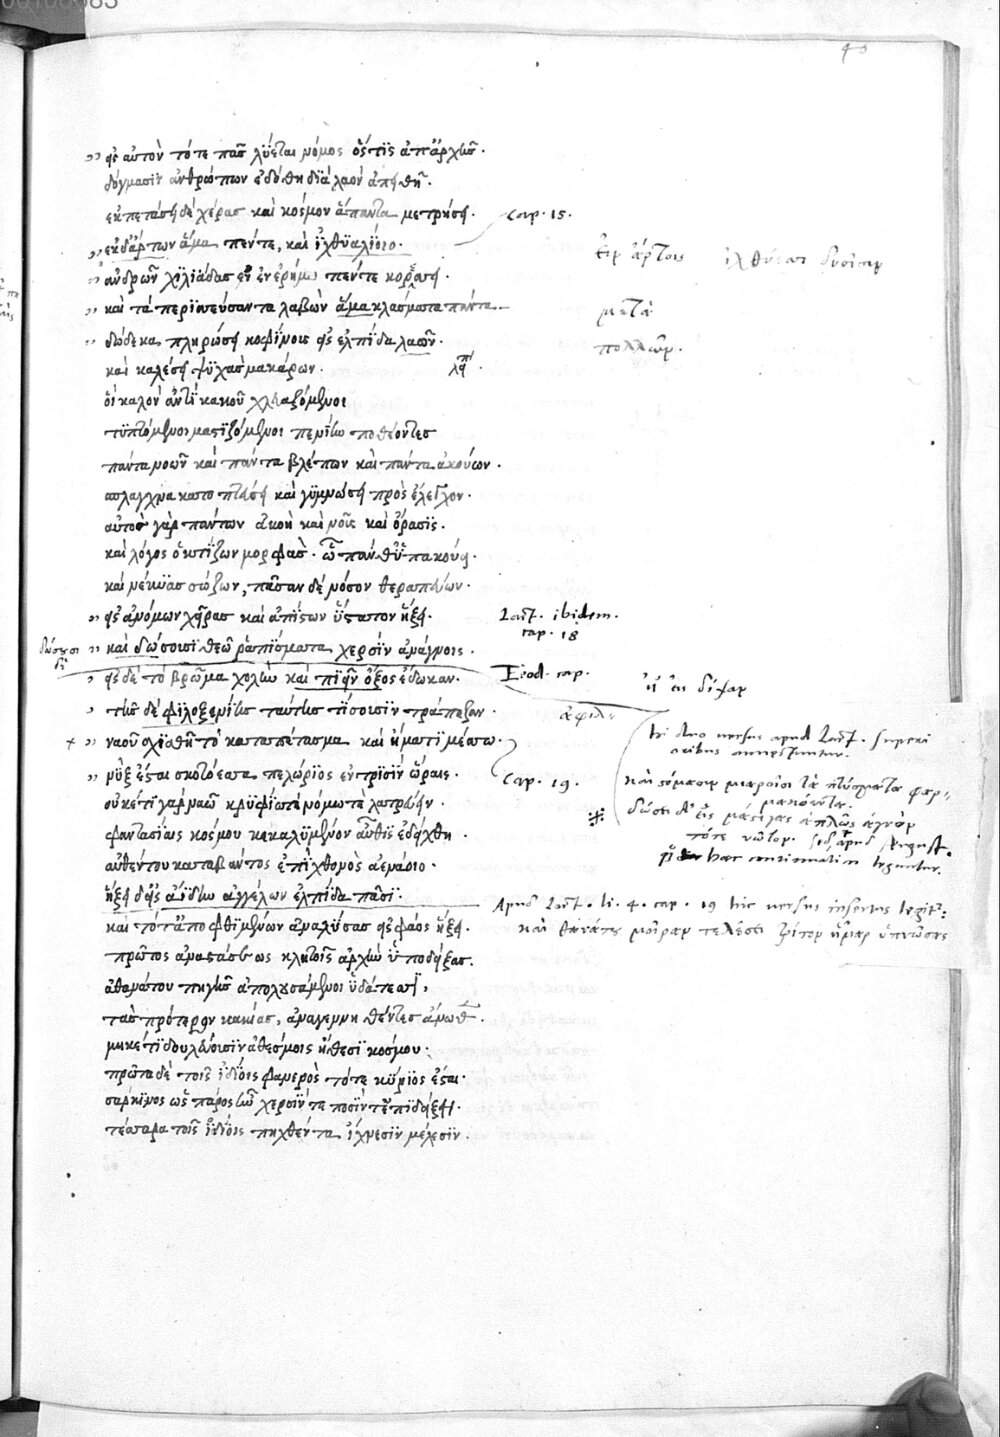 40
εἰς αὐτὸν τότε πᾶς λύεται νόμος ὅστις ἀπαρχῆς.
δόγμασιν ἀνθρώπων ἐδόθη διὰ λαὸν ἀπειθῆ.
ἐκπετάσει δὲ χέρας καὶ κόσμον ἅπαντα μετρήσει.
cap. 15.
ἐκ δ' ἄρτων ἅμα πέντε, καὶ ἰχθύ' ἁλίοιο.
εἰν ἄρτοις ἰχθύεσσι δυσὶν
ἀνδρῶν χιλιάδας ἐν ἐρήμῳ πέντε κορέσει.
καὶ τὰ περισσεύσαντα λαβὼν ἅμα κλάσματα πάντα
μετὰ
δώδεκα πληρώσει κοφίνους εἰς ἐλπίδα λαῶν.
πολλῶν.
καὶ καλέσει ψυχὰς μακάρων.
οἱ καλὸν ἀντὶ κακοῦ χλευαζόμενοι
τυπτόμενοι μαστιζόμενοι πενίην ποθέοντες
πάντα νοῶν καὶ πάντα βλέπων καὶ πάντα ἀκούων.
σπλάγχνα κατοπτεύσει καὶ γυμνώσει πρὸς ἔλεγχον.
αὐτὸς γὰρ πάντων ἀκοὴ καὶ νοῦς καὶ ὅρασις.
καὶ λόγος ὁ κτίζων μορφὰς. ὧ πᾶν θ' ὑπακούει.
καὶ νέκυας σώζων, πᾶσαν δὲ νόσον θεραπεύων.
εἰς ἀνόμων χεῖρας καὶ ἀπίστων ὕστατον ἥξει.
Lact. ibidem.
cap. 18
δώσουσι δὲ
καὶ δώσουσι θεῷ ῥαπίσματα χερσὶν ἀνάγνοις.
εἰς δὲ τὸ βρῶμα χολὴν καὶ πιεῖν ὄξος ἔδωκαν.
Eod. cap.
ἢ εἰς δίψαν
τῆς δὲ φιλοξενίης ταύτης τίσουσιν τράπεζαν.
ἀφιλ=
ναοῦ σχισθῇ τὸ καταπέτασμα καὶ ἤματι μέσσῳ.
hi duo versus apud Lact. superioribus annectuntur.
νὺξ ἔσται σκοτόεσσα πελώριος ἐν τρισὶν ὥραις.
cap. 19.
καὶ στόμασιν μιαροῖσι τὰ πτύσματα φαρμακόεντα.
οὐκέτι γὰρ ναῷ κρυφίῳ τε νόμῳ τε λατρεύειν.
δώσει δ' εἰς μάστιγας ἁπλῶς ἁγνὸν
τότε νῶτον. sed apud August.
φαντασίαις κόσμου κεκαλυμμένον αὖθις ἐδείχθη.
αὐθέντου καταβάντος ἐπὶ χθονὸς ἀενάοιο.
ἥξει δ' εἰς ἀΐδην ἀγγέλων ἐλπίδα πᾶσι.
Apud Lact. li. 4. cap. 19 hic versus insertus legit.:
καὶ τότ' ἀπὸ φθιμένων ἀναλύσας εἰς φάος ἥξει.
καὶ θανάτου μοῖραν τελέσει τρίτον ἦμαρ ὑπνώσας
πρῶτος ἀναστάσεως κλητοῖς ἀρχὴν ὑποδείξας.
ἀθανάτου πηγῆς ἀπολουσάμενοι ὑδάτεσσι,
τὰς πρότερον κακίας, ἀναγεννηθέντες ἄνωθεν.
μηκέτι δουλεύοισιν ἀθέσμοις ἤθεσι κόσμου.
πρῶτα δὲ τοῖς ἰδίοις φανερὸς τότε κύριος ἔσται.
σάρκινος ὡς πάρος ἦν χερσίν τε ποσίν τ' ἐπιδείξει.
τέσσαρα τοῖς ἰδίοις πηχθέντα ἴχνεσιν μέλεσιν.